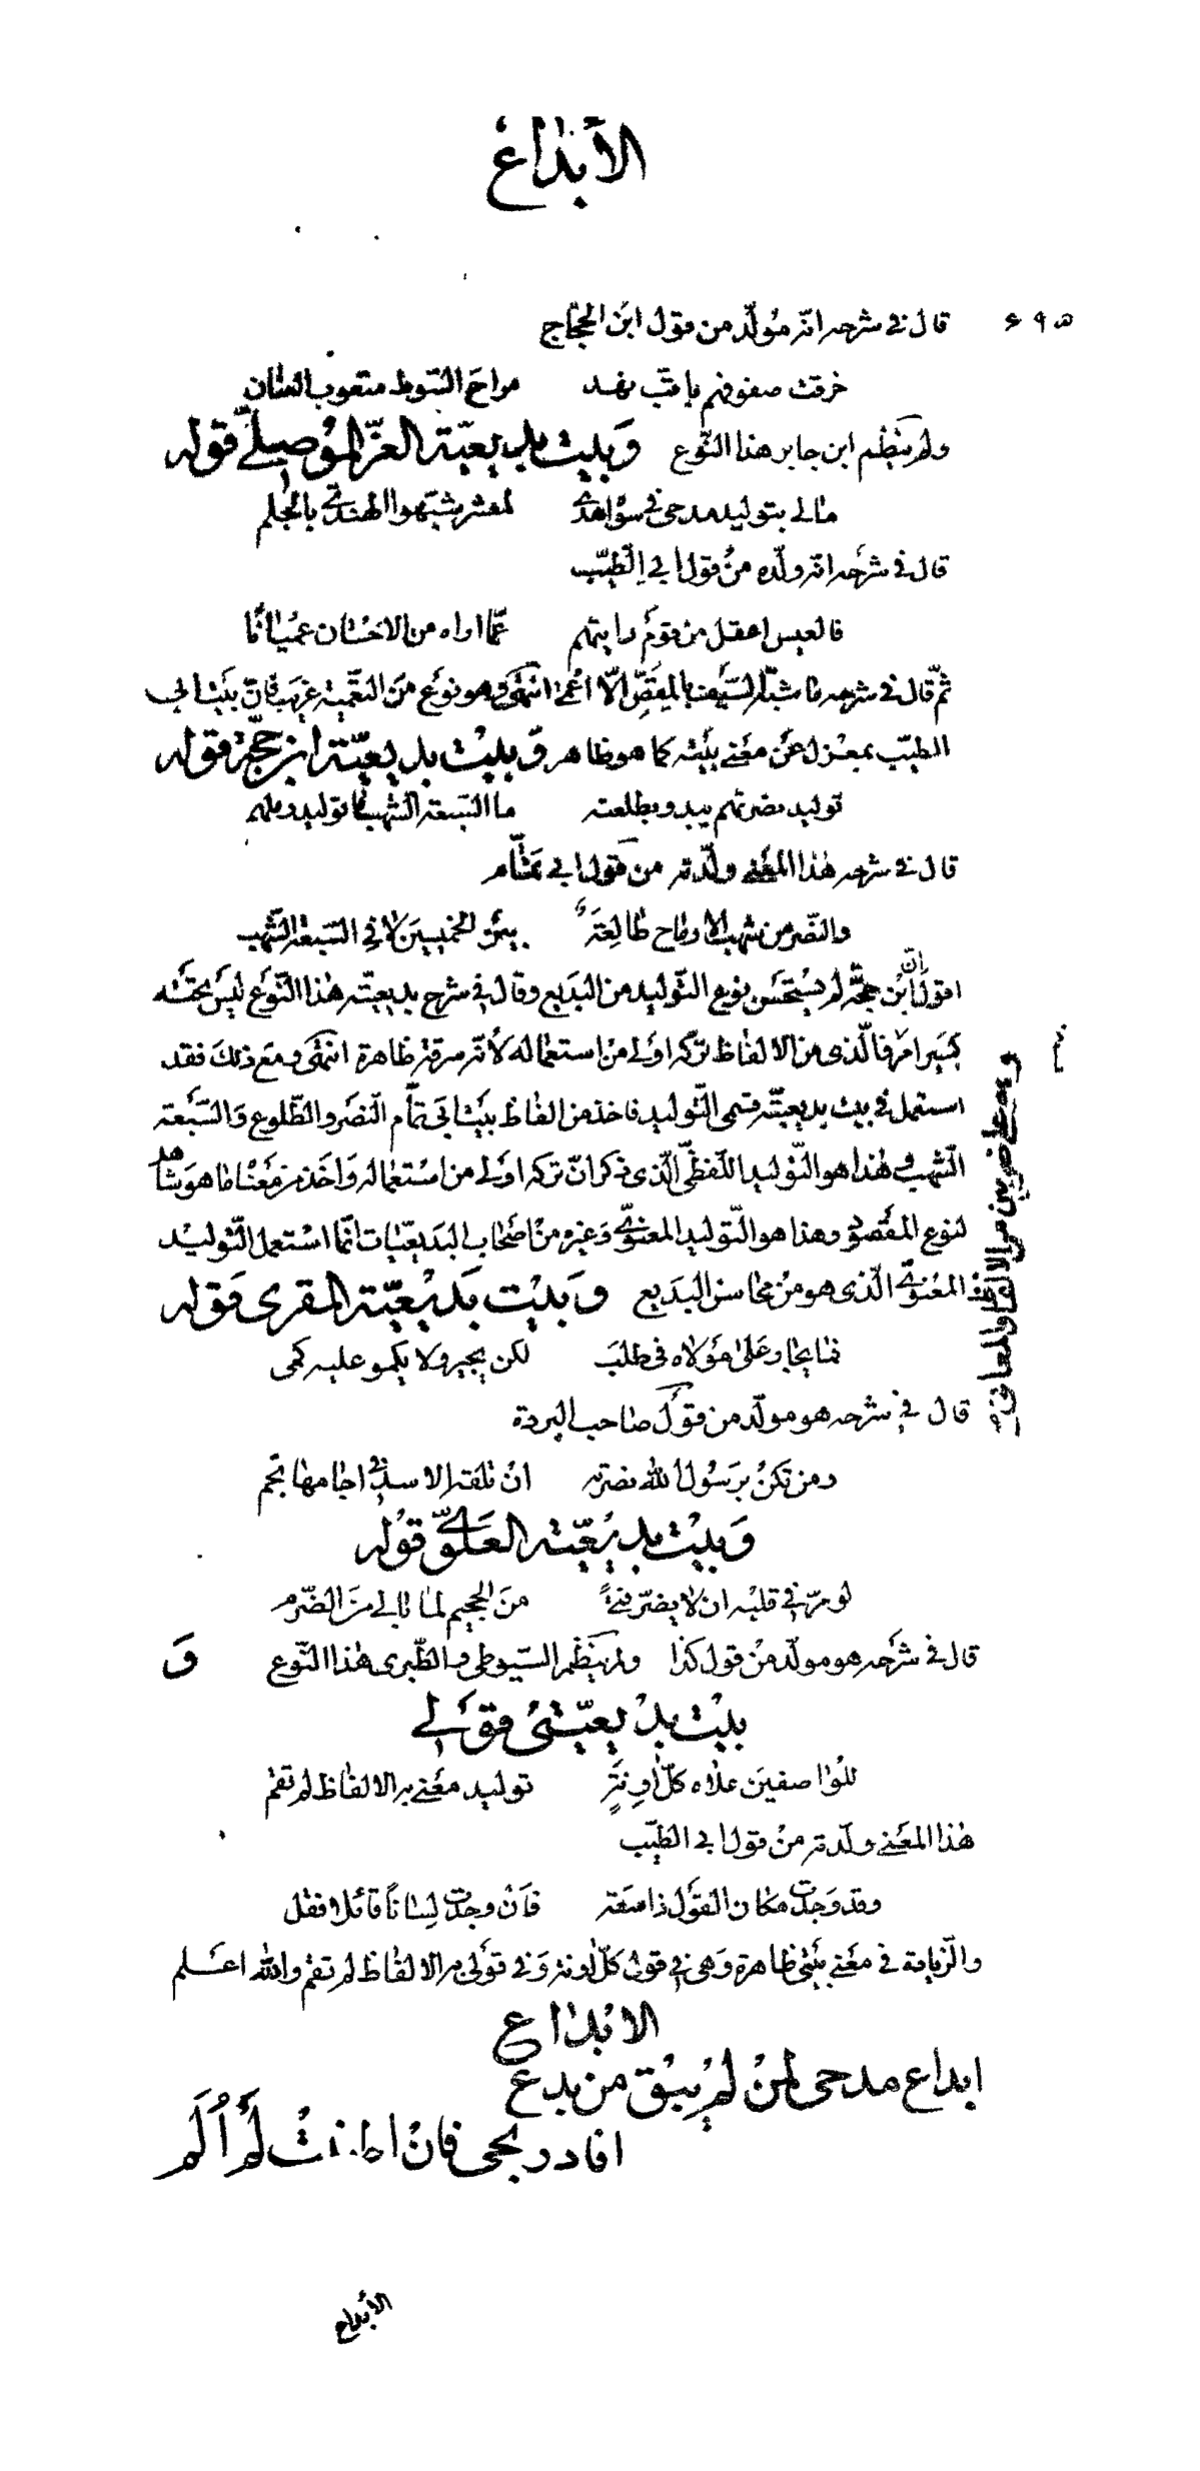 الأبداع
٥٩٤
قال في شرحه انّه مُولّد من قول ابن الحجّاج
خرقت صفوفهم باقبّ نهد مراح السّوط متعوب العنان
ولم ينظم ابن جابر هذا النّوع وَبيت بديعيّة العزّ المُوصليّ قوله
مالى بتوليد مدحى في سواهم لمعشر شبّهوا الهندىّ بالجلم
قال في شرحه انّه ولّده من قول ابي الطيّب
فالعيس اعقل من قوم رايتهم عمّا اراه من الاحسان عميانًا
ثمّ قال في شرحه ما شبّه السّيف بالمِقصّ الّا أعمى انتهى وهو نوع من التّعمية غريب فانّ بيت ابي
الطيّب بمعزل عن معنى بيته كما هو ظاهر وَبيت بديعيّة ابن حجّة قوله
توليد نصرتهم يبدو بطلعته ما السّبعة الشّهب ما توليد رملهم
قال في شرحه هذا المعنى ولّدته من قول ابي تمّام
والنّصر من شهب الارماح طالِعَةً بين الخميسين لا في السّبعة الشّهب
اقول انّ ابن حجّة لم يستحسن نوع التّوليد من البديع وقال في شرح بديعيّته هذا النّوع ليس تحته
كبير امر فالّذى من الالفاظ تركه اولى من استعماله لأنّه سرقة ظاهرة انتهى ومع ذلك فقد
استعمل في بيت بديعيّته قسمى التّوليد فاخذ من الفاظ بيت ابي تمّام النّصر والطّلوع والسّبعة
الشّهب وهذا هو التّوليد اللّفظىّ الّذى ذكر انّ تركه اولى من استعماله وَاخذ من معناه ما هو شاهد
لنوع المقصود وهذا هو التّوليد المعنوىّ وَغيره من اصحاب البديعيّات انّما استعمل التّوليد
المعنوىّ الّذى هو من محاسن البديع وَبيت بَديعيّة المقرى قوله
فما يجار على مولاه في طلب لكن يجير ولا يكمو عليه كمى
قال في شرحه هو مولّد من قول صاحب البردة
ومن تكن برسول الله نصرته ان تلقه الاسد في اجامها تجم
وَبيت بديعيّته العلوىّ قوله
لو مرّ في قلبه ان لا يضرّ فتىً من الجحيم لما نالى من الضّرم
قال في شرحه هو مولّد من قول كذا ولم ينظم السّيوطى والطّبرى هذا النّوع وَ
بيت بديعيّتى قولى
للواصفين علاه كلّ اونةٍ توليد معنى به الالفاظ لم تقم
هذا المعنى ولّدته من قول ابي الطيّب
وقد وجدت مكان القول ذا سعة فان وجدت لسانًا قائلا فقل
والزّيادة في معنى بيتى ظاهرة وهى في قولى كلّ اونة وفي قولى به الالفاظ لم تقم والله اعلم
الابداع
ابداع مدحى لمن لم يبق من بدع
افاد ربحى فان اطنبت لم اُلم
الأبداع